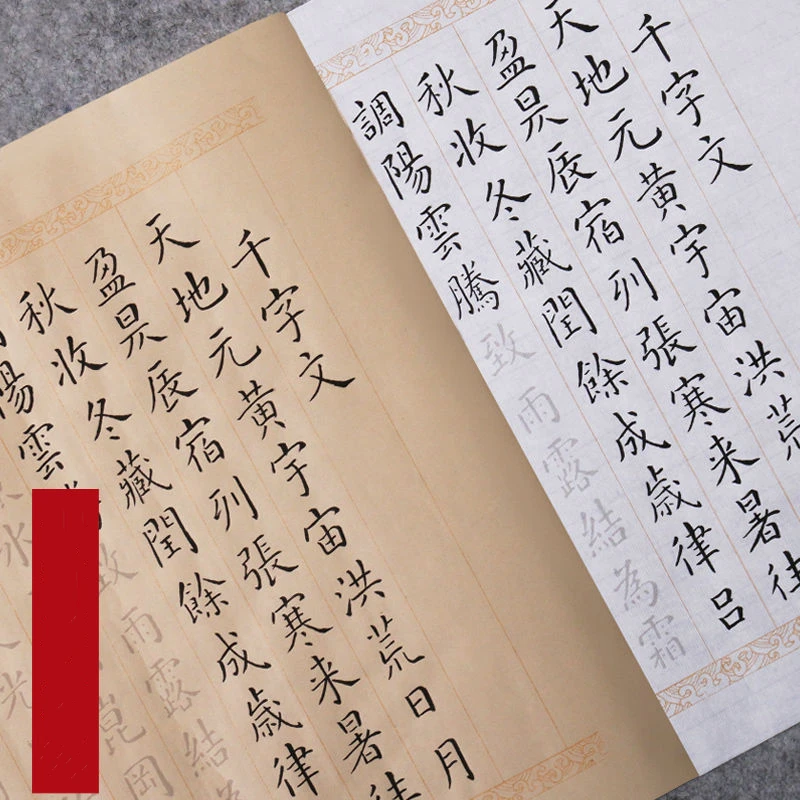 千字文
天地元黃宇宙洪荒
盈昃辰宿列張寒来暑往
秋收冬藏閏餘成歳律吕
調陽雲騰致雨露結為霜
千字文
天地元黃宇宙洪荒日月
盈昃辰宿列張寒来暑往
秋收冬藏閏餘成歳律
陽雲致雨露結
水崑岡
光